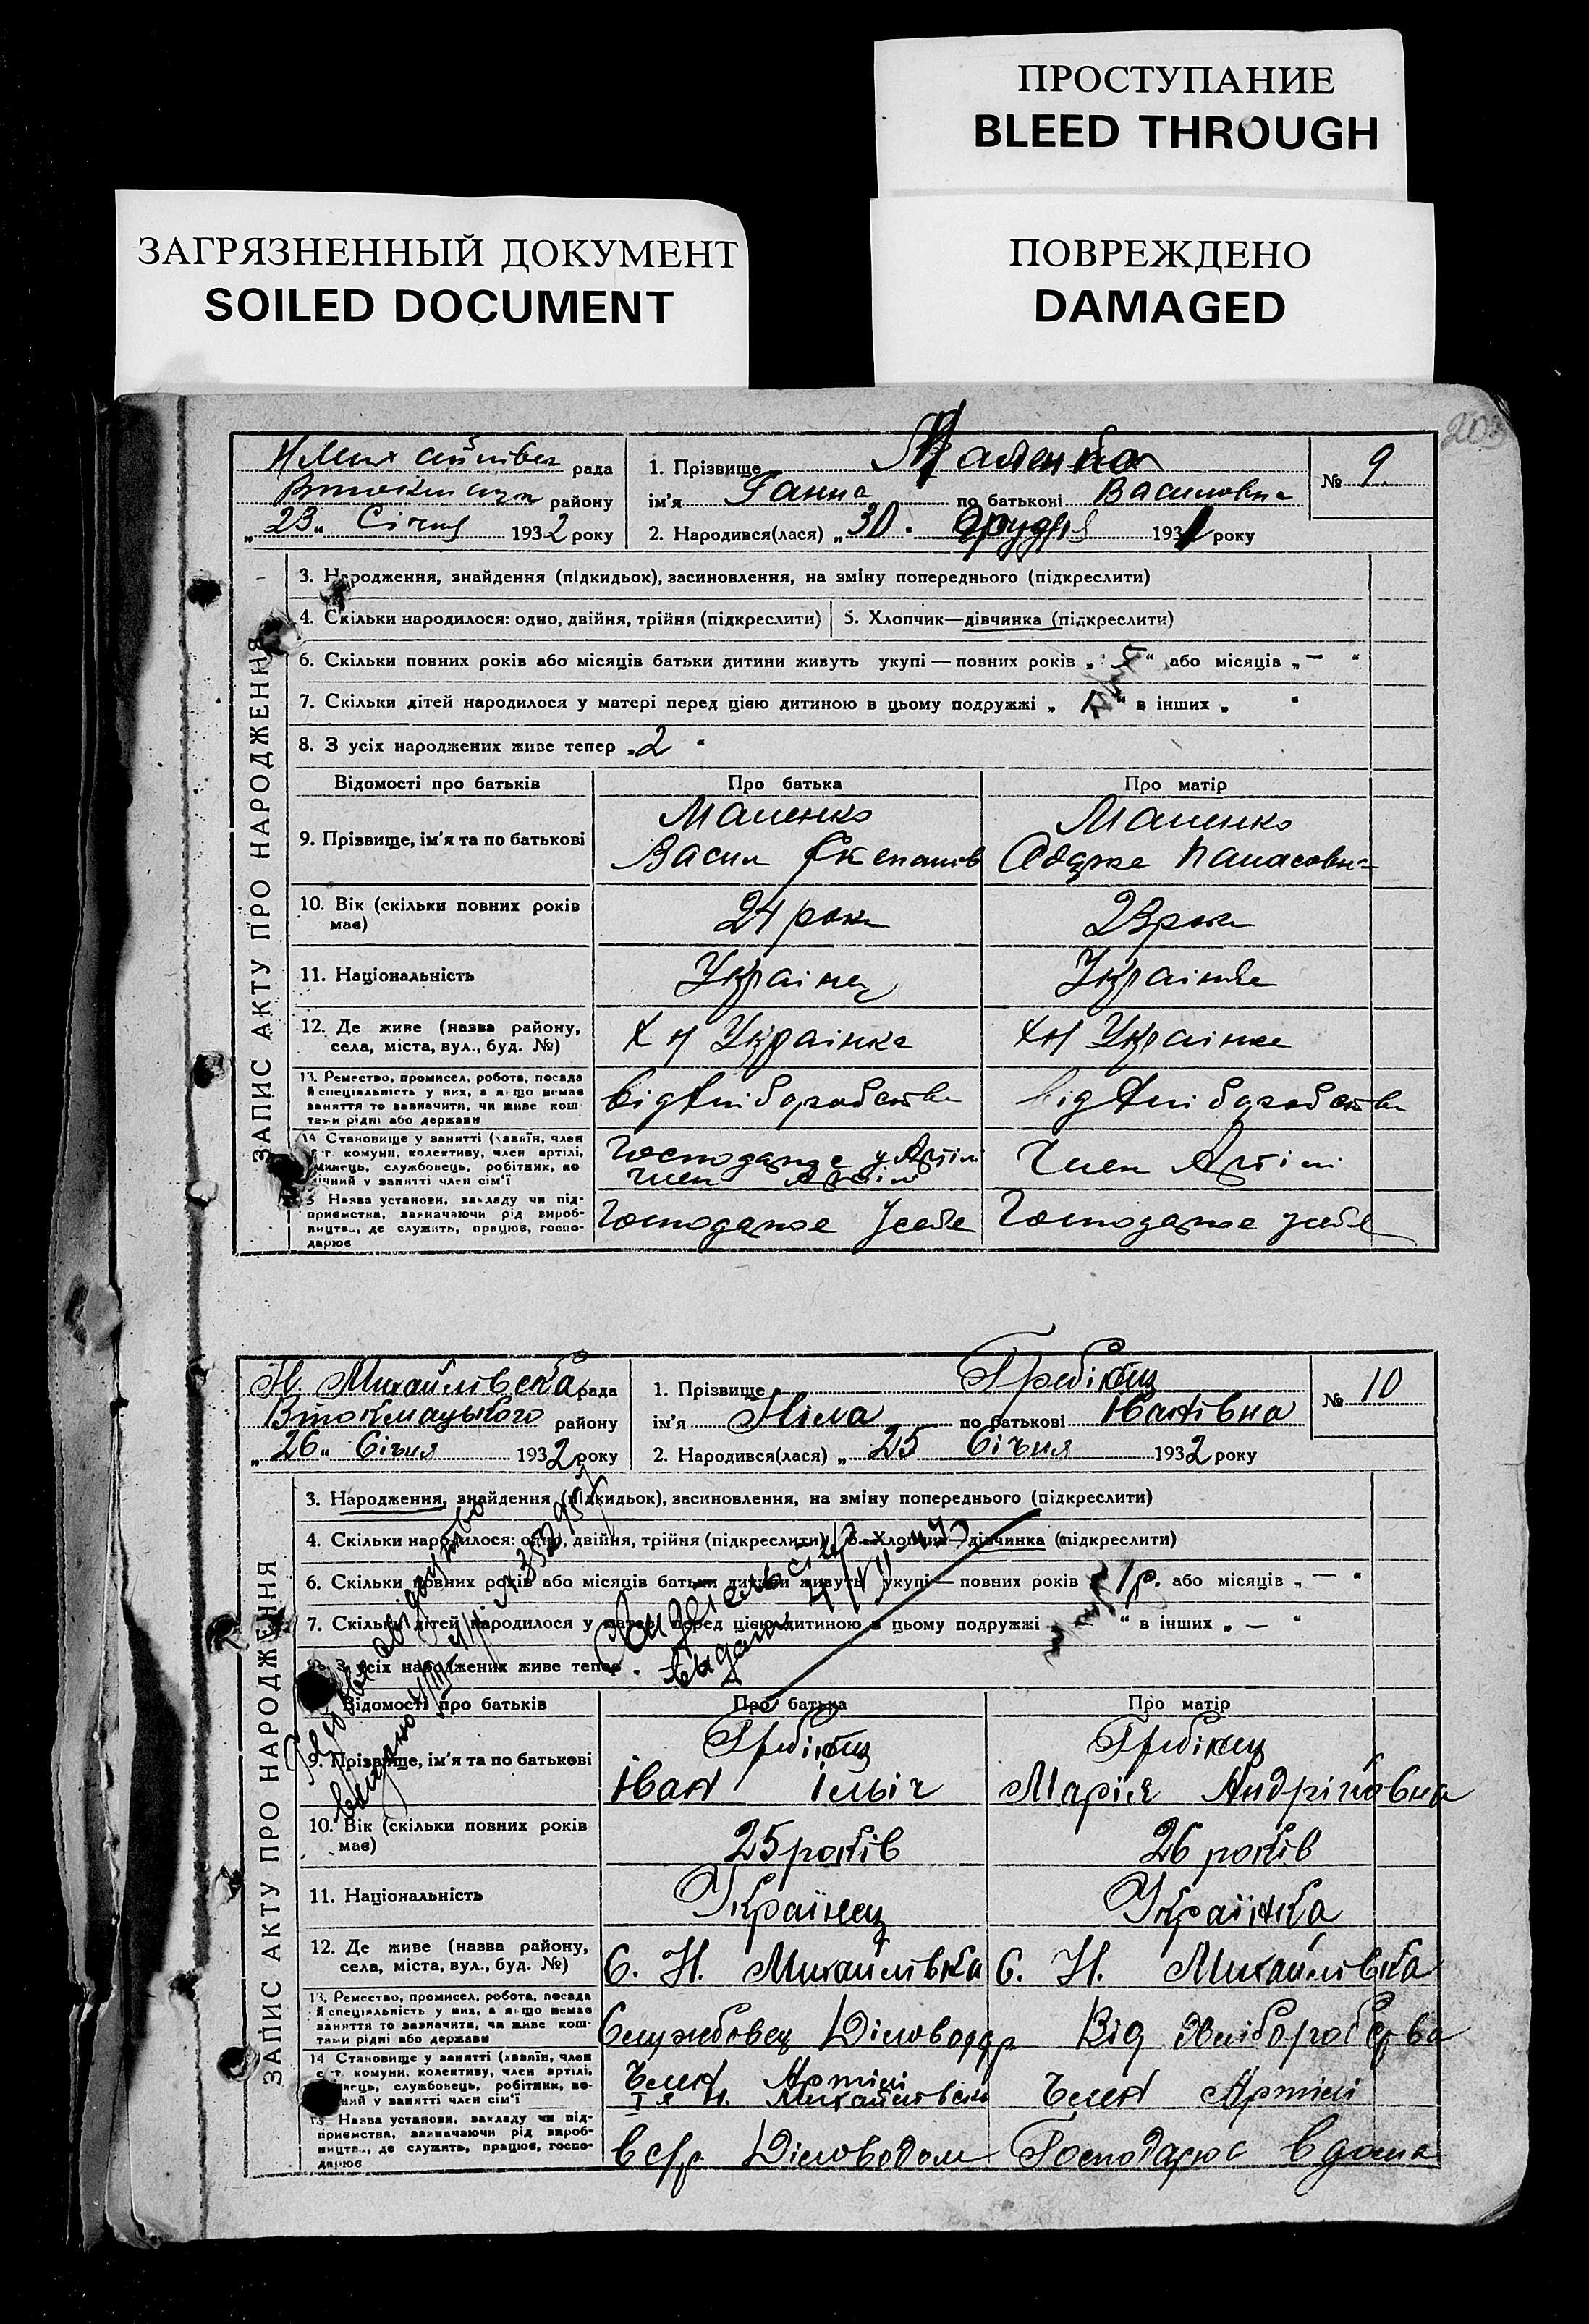 ПРОСТУПАНИЕ
BLEED THROUGH
ЗАГРЯЗНЕННЫЙ ДОКУМЕНТ
SOILED DOCUMENT
ПОВРЕЖДЕНО
DAMAGED
203
рада
району
„23„ Січня 1932 року
1. Прізвище Маленко
ім'я Ганна по батькові Василовна
2. Народився(лася) „30. грудня 1931 року
№ 9.
ЗАПИС АКТУ ПРО НАРОДЖЕННЯ
3. Народження, знайдення (підкидьок), засиновлення, на зміну попереднього (підкреслити)
4. Скільки народилося: одно, двійня, трійня (підкреслити) 5. Хлопчик—дівчинка (підкреслити)
6. Скільки повних років або місяців батьки дитини живуть укупі — повних років „ 5 “ або місяців „ — “
7. Скільки дітей народилося у матері перед цією дитиною в цьому подружжі „ 1 “ в інших „ “
8. З усіх народжених живе тепер „2 “
Відомості про батьків Про батька Про матір
9. Прізвище, ім'я та по батькові Маленко Маленко
Васил Папасовн
10. Вік (скільки повних років має) 24 роки 23 роки
11. Національність Українец Українка
12. Де живе (назва району, села, міста, вул., буд. №) Х Н Українка ХН Українка
13. Ремество, промисел, робота, посада
й спеціяльність у них, а якщо немає
заняття то зазначити, чи живе кош-
тами рідні або держави
14 Становище у занятті (хазяїн, член
с.-г. комуни, колективу, член артілі,
службовець, робітник, по-
мічний у занятті член сім'ї
Член Артілі Член Артілі
15 Назва установи, закладу чи під-
приємства, зазначаючи рід вироб-
ництв., де служить, працює, госпо-
дарює
Господарює усебе Господарює усебе
Н. Михайлівська рада
Втокмацького району
„26„ Січня 1932 року
1. Прізвище Гребінец
ім'я Ніла по батькові Іванівна
2. Народився(лася) „ 25 Січня 1932 року
№ 10
ЗАПИС АКТУ ПРО НАРОДЖЕННЯ
3. Народження, знайдення (підкидьок), засиновлення, на зміну попереднього (підкреслити)
4. Скільки народилося: одно, двійня, трійня (підкреслити) 5. Хлопчик—дівчинка (підкреслити)
6. Скільки повних років або місяців батьки дитини живуть укупі — повних років „ 1р. або місяців „ — “
7. Скільки дітей народилося у матері перед цією дитиною в цьому подружжі “ в інших „ —
8. З усіх народжених живе тепер „
Відомості про батьків Про батька Про матір
9. Прізвище, ім'я та по батькові Гребінец Гребінец
Іван Ільіч Марія Андріївна
10. Вік (скільки повних років має) 25 років 26 років
11. Національність Українец Українка
12. Де живе (назва району, села, міста, вул., буд. №) С. Н. Михайлівка С. Н. Михайлівка
13. Ремество, промисел, робота, посада
й спеціяльність у них, а якщо немає
заняття то зазначити, чи живе кош-
тами рідні або держави
Службовец Діловодар Від хліборобства
14 Становище у занятті (хазяїн, член
с.-г. комуни, колективу, член артілі,
службовець, робітник, по-
мічний у занятті член сім'ї
Член Артілі Член Артілі
15 Назва установи, закладу чи під-
приємства, зазначаючи рід вироб-
ництв., де служить, працює, госпо-
дарює
в с/р. Діловодом Господарює вдома